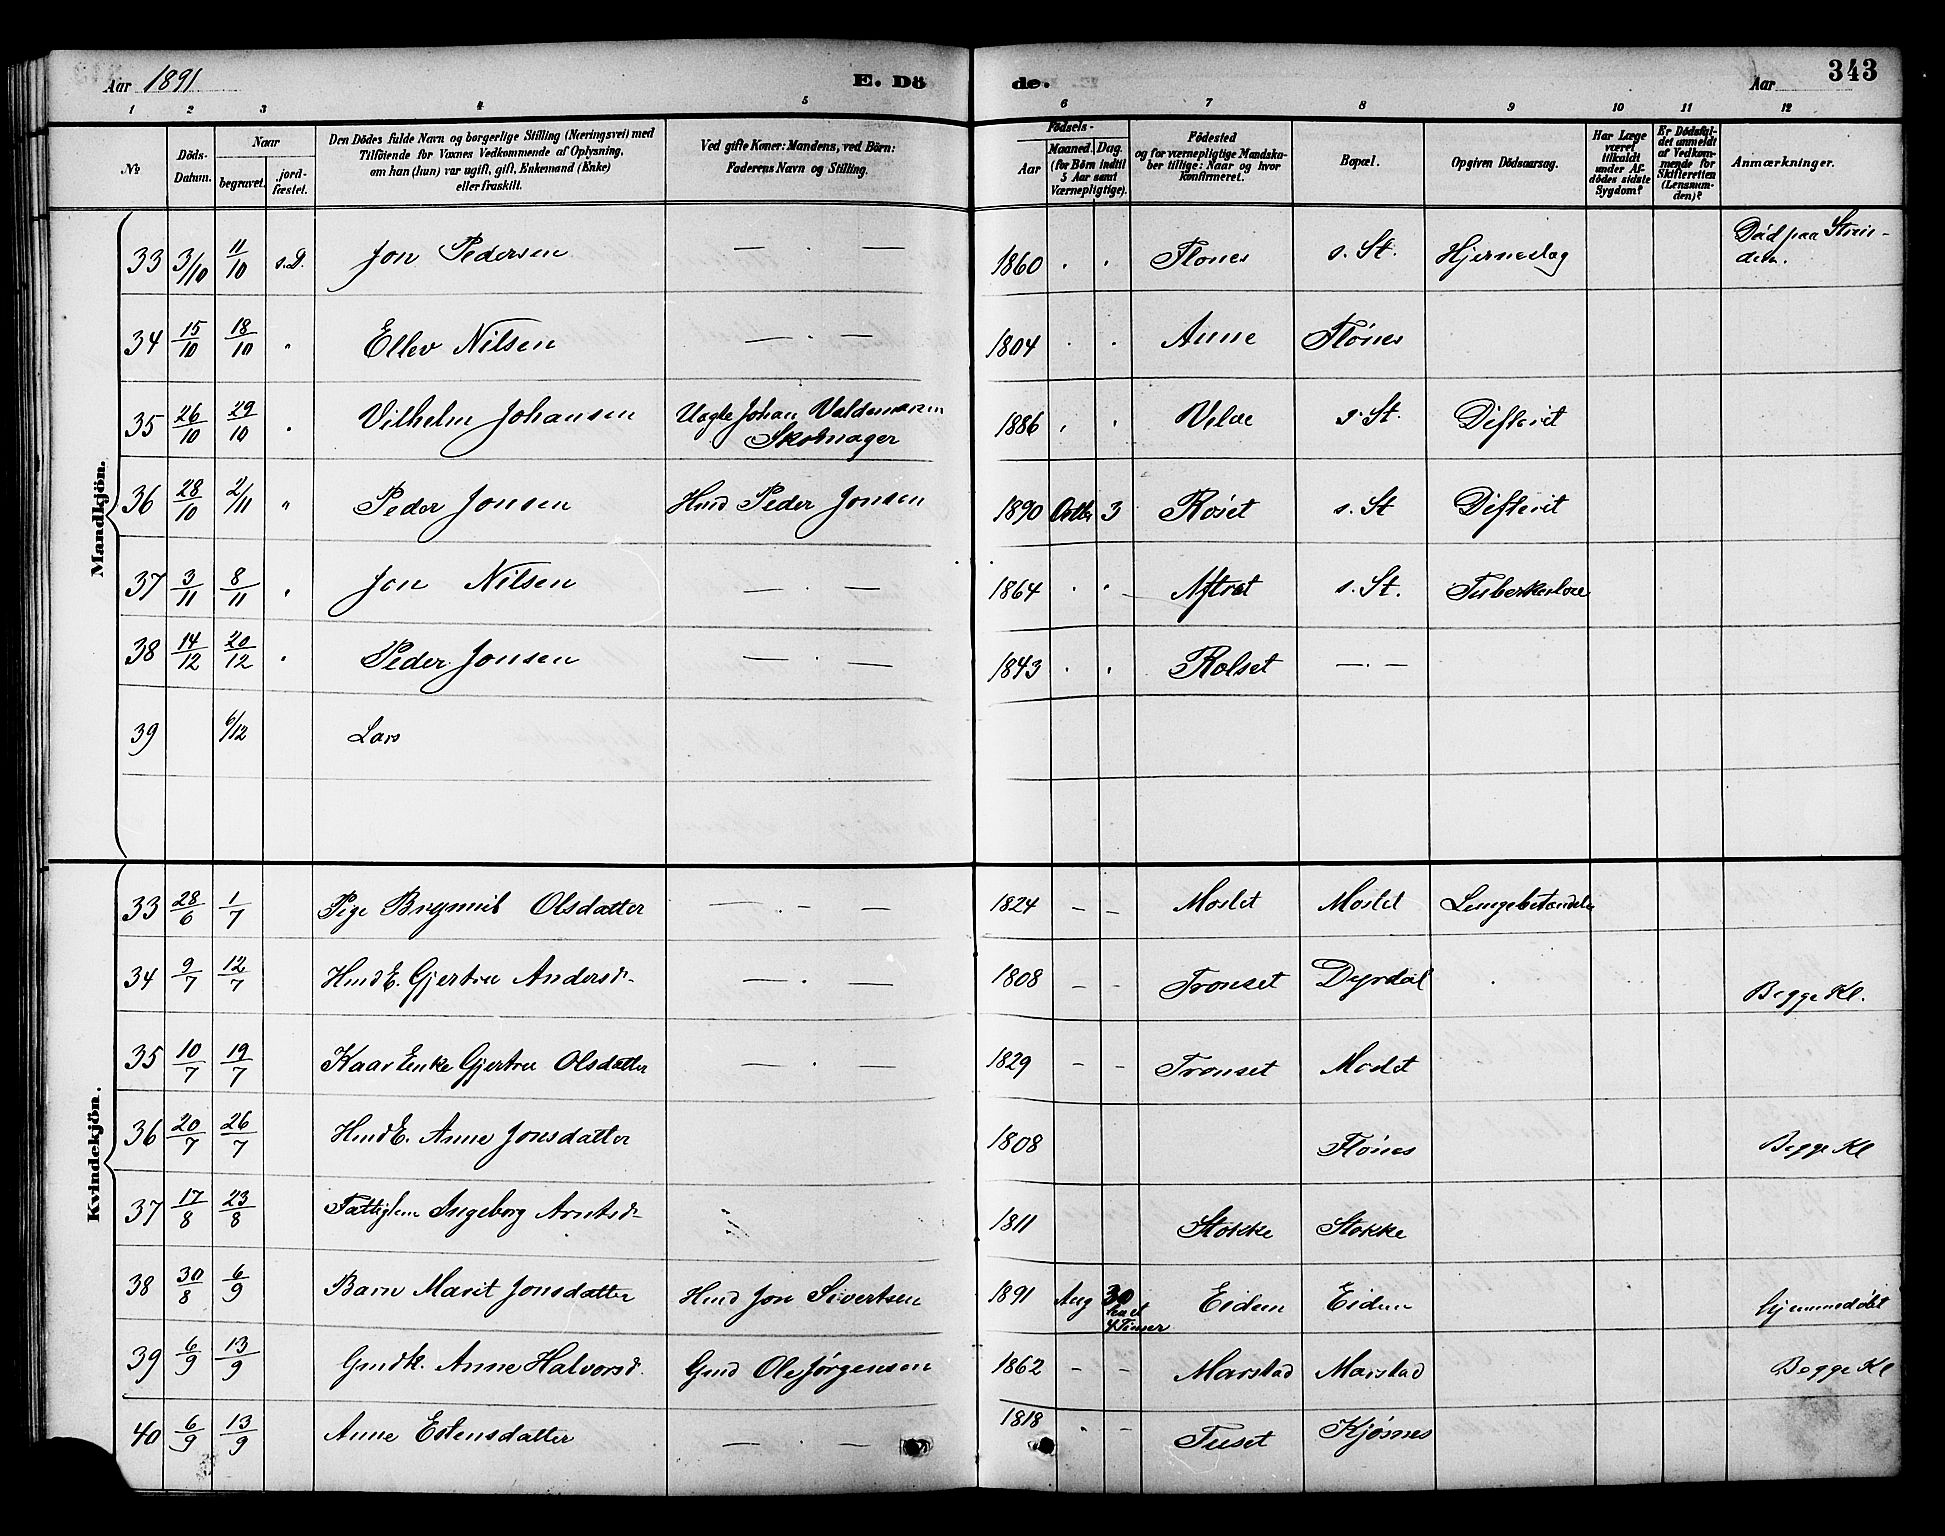 Aar 1891
E. Dö
de.
Aar
343
1 2 3 4 5 6 7 8 9 10 11 12
No
Döds-Datum.
Naar
begravet.
jordfæstet.
Den Dödes fulde Navn og borgerlige Stilling (Næringsvei) med
Tilföiende for Voxnes Vedkommende af Oplysning,
om han (hun) var ugift, gift, Enkemand (Enke)
eller fraskilt.
Ved gifte Koner: Mandens, ved Börn:
Faderens Navn og Stilling.
Födsels-
Aar
Maaned. Dag.
(for Börn indtil
5 Aar samt
Værnepligtige).
Födested
og for værnepligtige Mandskaber
tillige: Naar og hvor
konfirmeret.
Bopæl.
Opgiven Dödsaarsag.
Har Læge
været
tilkaldt
under Afdödes
sidste
Sygdom?
Er Dödsfaldet
anmeldt
af Vedkommende
for
Skifteretten
(Lensmanden)?
Anmærkninger.
Mandkjön.
33 3/10 11/10 s.D. Jon Pedersen — . — 1860 . . Flones s. St. Hjerneslag Död paa Strinden.
34 15/10 18/10 " Ellev Nilsen — . — 1804 . . Aune Flönes
35 26/10 29/10 " Vilhelm Johansen Johan Valdemarsen Skomager 1886 . . s. St. Difterit
36 28/10 2/11 " Peder Jonsen Hmd Peder Jonsen 1890 Octbr 3 Röset s. St Difterit
37 3/11 8/11 " Jon Nilsen — . — 1864 . . Aftret s. St. Tuberkulose
38 14/12 20/12 " Peder Jonsen — . — 1843 . . Rolset — . —
39 6/12 Lars
Kvindekjön.
33 28/6 1/7 Pige Olsdatter — . — 1824 – – Moslet Moslet Lungebetændelse
34 9/7 12/7 HmdE. Gjertru Andersd. — . — 1808 – – Tronset Dyrdal Begge Kl.
35 10/7 19/7 Kaar Enke Gjertru Olsdatter — . — 1829 – – Tronset Moslet
36 20/7 26/7 HmdE. Anne Jonsdatter 1808 Flönes Begge Kl
37 17/8 23/8 Fattiglem Ingeborg Arntsd. 1811 Stokke Stokke
38 30/8 6/9 Barn Marit Jonsdatter Hmd Jon Sivertsen 1891 Aug 30 4 Timer Eidem Eidem hjemmedöbt
39 6/9 13/9 Gmdk. Anne Halvorsd. Gmd Ole Jörgensen 1862 – – Marstad Marstad Begge Kl
40 6/9 13/9 Anne Estensdatter — — 1818 . – Tuset Kjösnes